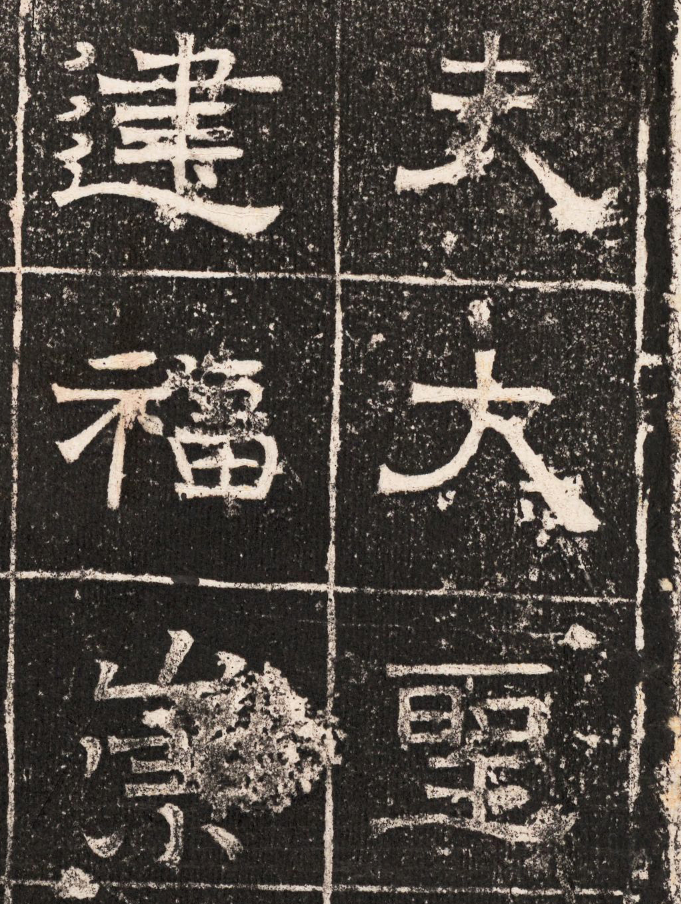 夫大聖
建福崇